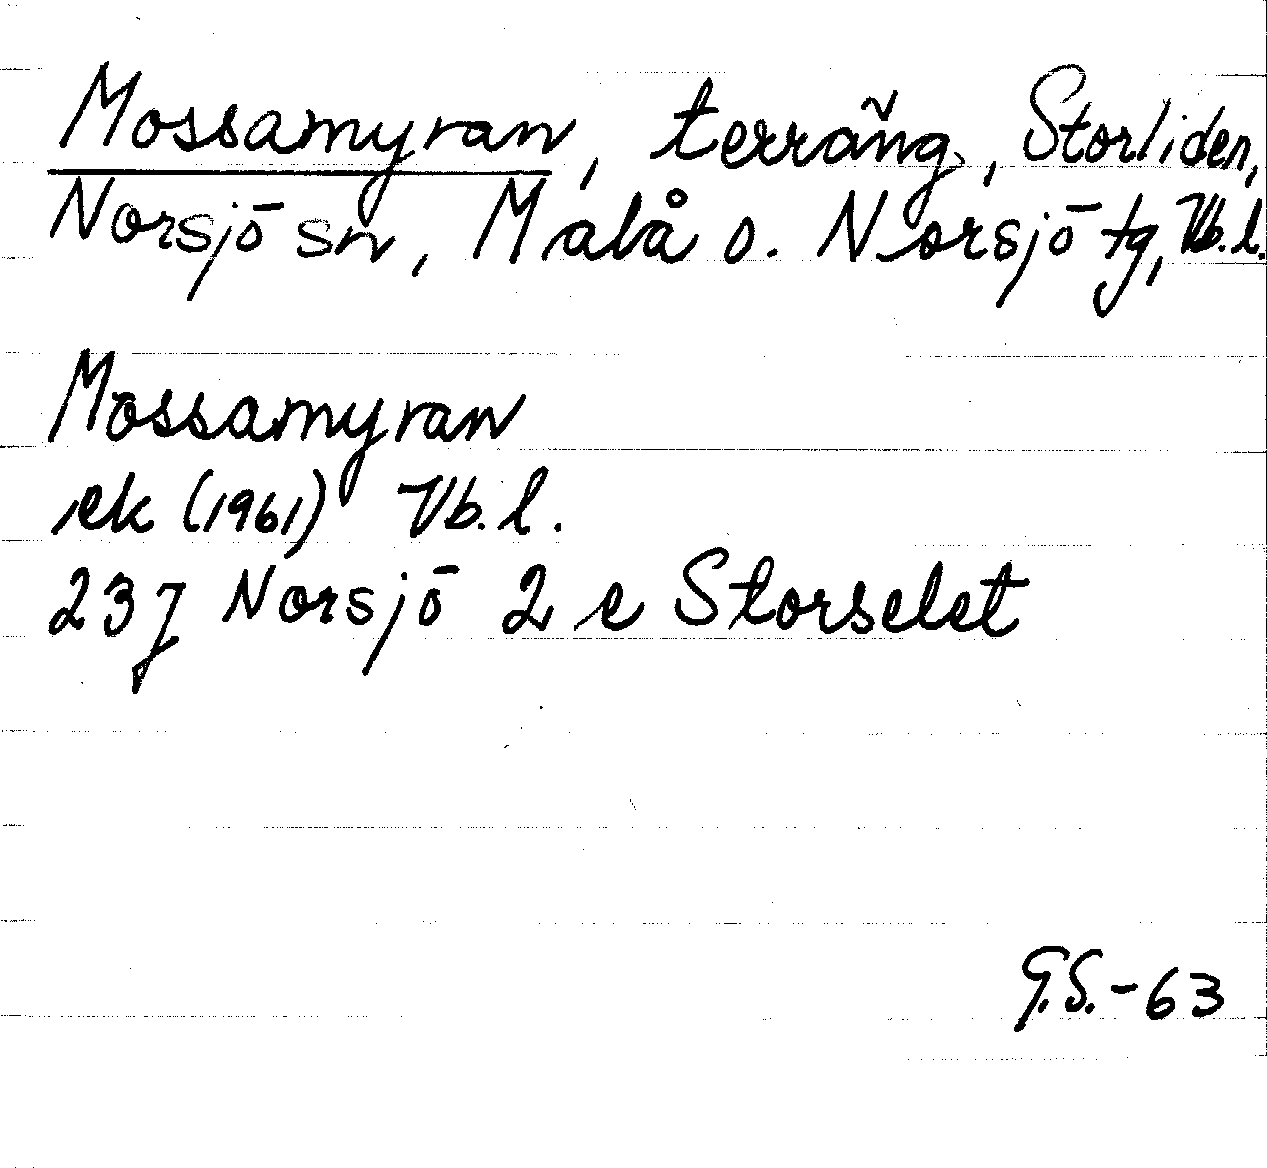 Mossamyran, terräng, Storliden,
Norsjö sn, Malå o. Norsjö tg, Vb. l.
Mossamyran
ek (1961) Vb. l.
23 J Norsjö 2 e Storselet
G.S.-63